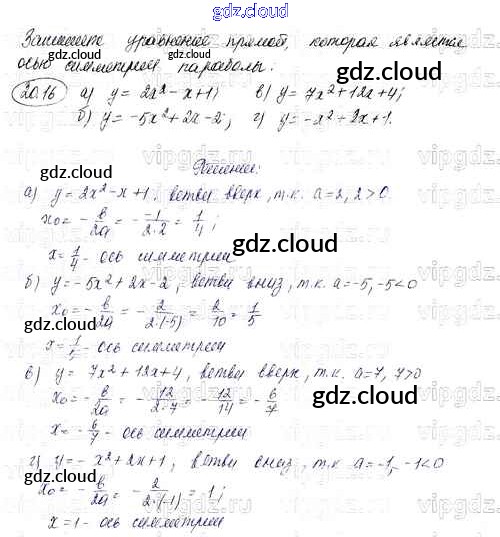 gdz.cloud
Запишите уравнение прямой, которая является
осью симметрии параболы.
gdz.cloud
20.16 а) y = 2x² - x + 1; в) y = 7x² + 12x + 4;
б) y = -5x² + 2x - 2; г) y = -x² + 2x + 1.
gdz.cloud
Решение:
gdz.cloud
а) y = 2x² - x + 1, ветви вверх, т.к. a = 2, 2 > 0
x₀ = -b/2a = - -1/2·2 = 1/4;
gdz.cloud
gdz.cloud
x = 1/4 - ось симметрии
б) y = -5x² + 2x - 2, ветви вниз, т.к. a = -5, -5 < 0
x₀ = -b/2a = - 2/2·(-5) = 2/10 = 1/5
gdz.cloud
gdz.cloud
x = 1/ - ось симметрии
в) y = 7x² + 12x + 4, ветви вверх, т.к. a = 7, 7 > 0
gdz.cloud
x₀ = -b/2a = - 12/2·7 = - 12/14 = - 6/7
gdz.cloud
x = - 6/7 - ось симметрии
г) y = -x² + 2x + 1, ветви вниз, т.к. a = -1, -1 < 0
gdz.cloud
x₀ = -b/2a = - 2/2·(-1) = 1;
gdz.cloud
x = 1 - ось симметрии
gdz.cloud